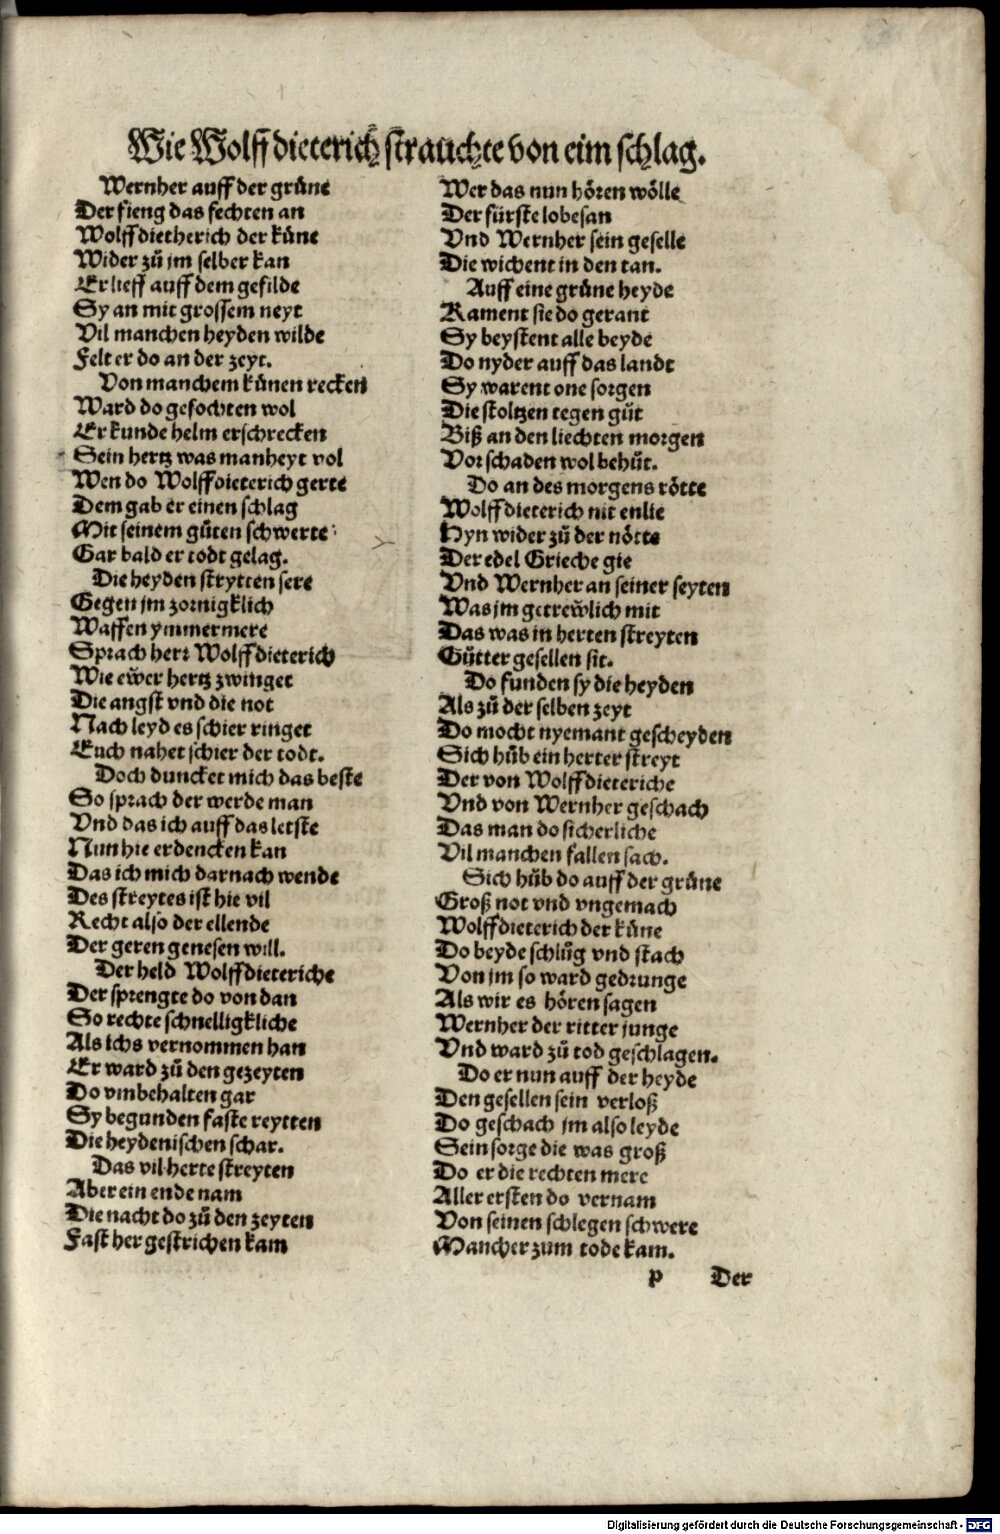 Wie Wolffdieterich strauchte von eim schlag.
Wernher auff der grůne
Der fieng das fechten an
Wolffdietherich der kůne
Wider zů jm selber kan
Er lieff auff dem gefilde
Sy an mit grossem neyt
Vil manchen heyden wilde
Felt er do an der zeyt.
Von manchem kůnen recken
Ward do gefochten wol
Er kunde helm erschrecken
Sein hertz was manheyt vol
Wen do Wolffdieterich gerte
Dem gab er einen schlag
Mit seinem gůten schwerte
Gar bald er todt gelag.
Die heyden strytten sere
Gegen jm zornigklich
Waffen ymmermere
Sprach herr Wolffdieterich
Wie eẅer hertz zwinget
Die angst vnd die not
Nach leyd es schier ringet
Euch nahet schier der todt.
Doch duncket mich das beste
So sprach der werde man
Vnd das ich auff das letste
Nun hie erdencken kan
Das ich mich darnach wende
Des streytes ist hie vil
Recht also der ellende
Der geren genesen will.
Der held Wolffdieteriche
Der sprengte do von dan
So rechte schnelligkliche
Als ichs vernommen han
Er ward zů den gezeyten
Do vmbehalten gar
Sy begunden faste reytten
Die heydenischen schar.
Das vil herte streyten
Aber ein ende nam
Die nacht do zů den zeyten
Fast her gestrichen kam
Wer das nun hören wölle
Der fürste lobesan
Vnd Wernher sein geselle
Die wichent in den tan.
Auff eine grůne heyde
Kament sie do gerant
Sy beystent alle beyde
Do nyder auff das landt
Sy warent one sorgen
Die stoltzen tegen gůt
Biß an den liechten morgen
Vor schaden wol behůt.
Do an des morgens rötte
Wolffdieterich nit enlie
Hyn wider zů der nötte
Der edel Grieche gie
Vnd Wernher an seiner seyten
Was jm getreẅlich mit
Das was in herten streyten
Gůtter gesellen sit.
Do funden sy die heyden
Als zů der selben zeyt
Do mocht nyemant gescheyden
Sich hůb ein herter streyt
Der von Wolffdieteriche
Vnd von Wernher geschach
Das man do sicherliche
Vil manchen fallen sach.
Sich hůb do auff der grůne
Groß not vnd vngemach
Wolffdieterich der kůne
Do beyde schlůg vnd stach
Von jm so ward gedrunge
Als wir es hören sagen
Wernher der ritter junge
Vnd ward zů tod geschlagen.
Do er nun auff der heyde
Den gesellen sein verloß
Do geschach jm also leyde
Sein sorge die was groß
Do er die rechten mere
Aller ersten do vernam
Von seinen schlegen schwere
Mancher zum tode kam.
p Der
Digitalisierung gefördert durch die Deutsche Forschungsgemeinschaft - DFG